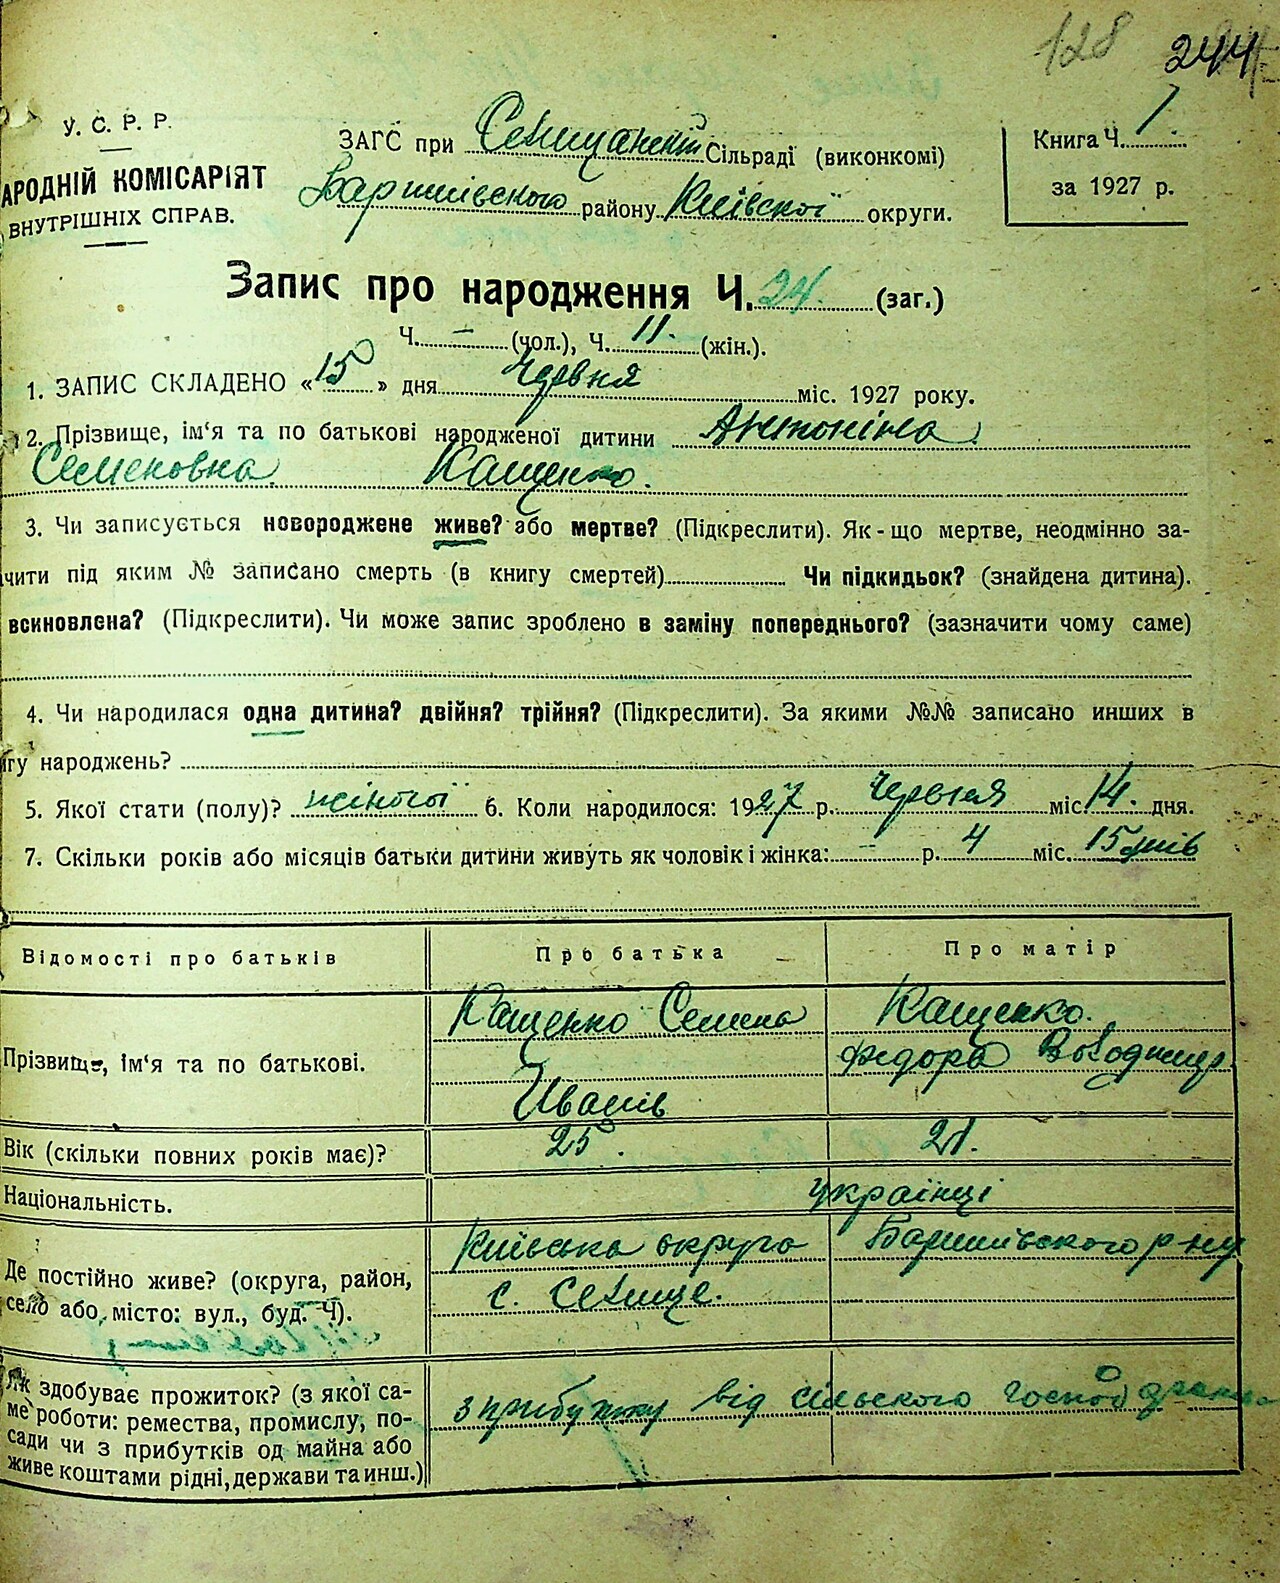 128 244
У. С. Р. Р.
АРОДНІЙ КОМІСАРІЯТ
ВНУТРІШНІХ СПРАВ.
ЗАГС при Селищанській Сільраді (виконкомі)
Баришівського району Київської округи.
Книга Ч. 1.
за 1927 р.
Запис про народження Ч. 24. (заг.)
Ч. — (чол.), Ч. 11. (жін.).
1. ЗАПИС СКЛАДЕНО «15» дня Червня міс. 1927 року.
2. Прізвище, ім‘я та по батькові народженої дитини Антоніна
Семеновна Кащенко.
3. Чи записується новороджене живе? або мертве? (Підкреслити). Як-що мертве, неодмінно за-
чити під яким № записано смерть (в книгу смертей) Чи підкидьок? (знайдена дитина).
всиновлена? (Підкреслити). Чи може запис зроблено в заміну попереднього? (зазначити чому саме)
4. Чи народилася одна дитина? двійня? трійня? (Підкреслити). За якими №№ записано инших в
игу народжень?
5. Якої стати (полу)? жіночої 6. Коли народилося: 1927 р. Червня міс. 14. дня.
7. Скільки років або місяців батьки дитини живуть як чоловік і жінка: — р. 4 міс. 15 днів
Відомості про батьків Про батька Про матір
Прізвище, ім‘я та по батькові.
Кащенко Семена
Иванів
Кащенко.
Федора
Вік (скільки повних років має)? 25. 21.
Національність. українці
Де постійно живе? (округа, район,
село або місто: вул., буд. Ч).
Київська округа Баришівського р-ну
с. Селище.
Як здобуває прожиток? (з якої са-
ме роботи: ремества, промислу, по-
сади чи з прибутків од майна або
живе коштами рідні, держави та инш.)
з прибутку від сільского